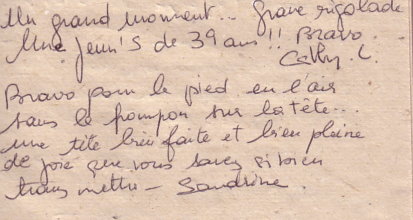 Un grand moment.. grave rigolade
Une jeun's de 39 ans !! Bravo.
Cathy. C.
Bravo pour le pied en l'air
sans le pompon sur la tête...
une tête bien faite et bien pleine
de joie que vous savez si bien
transmettre - Sandrine.